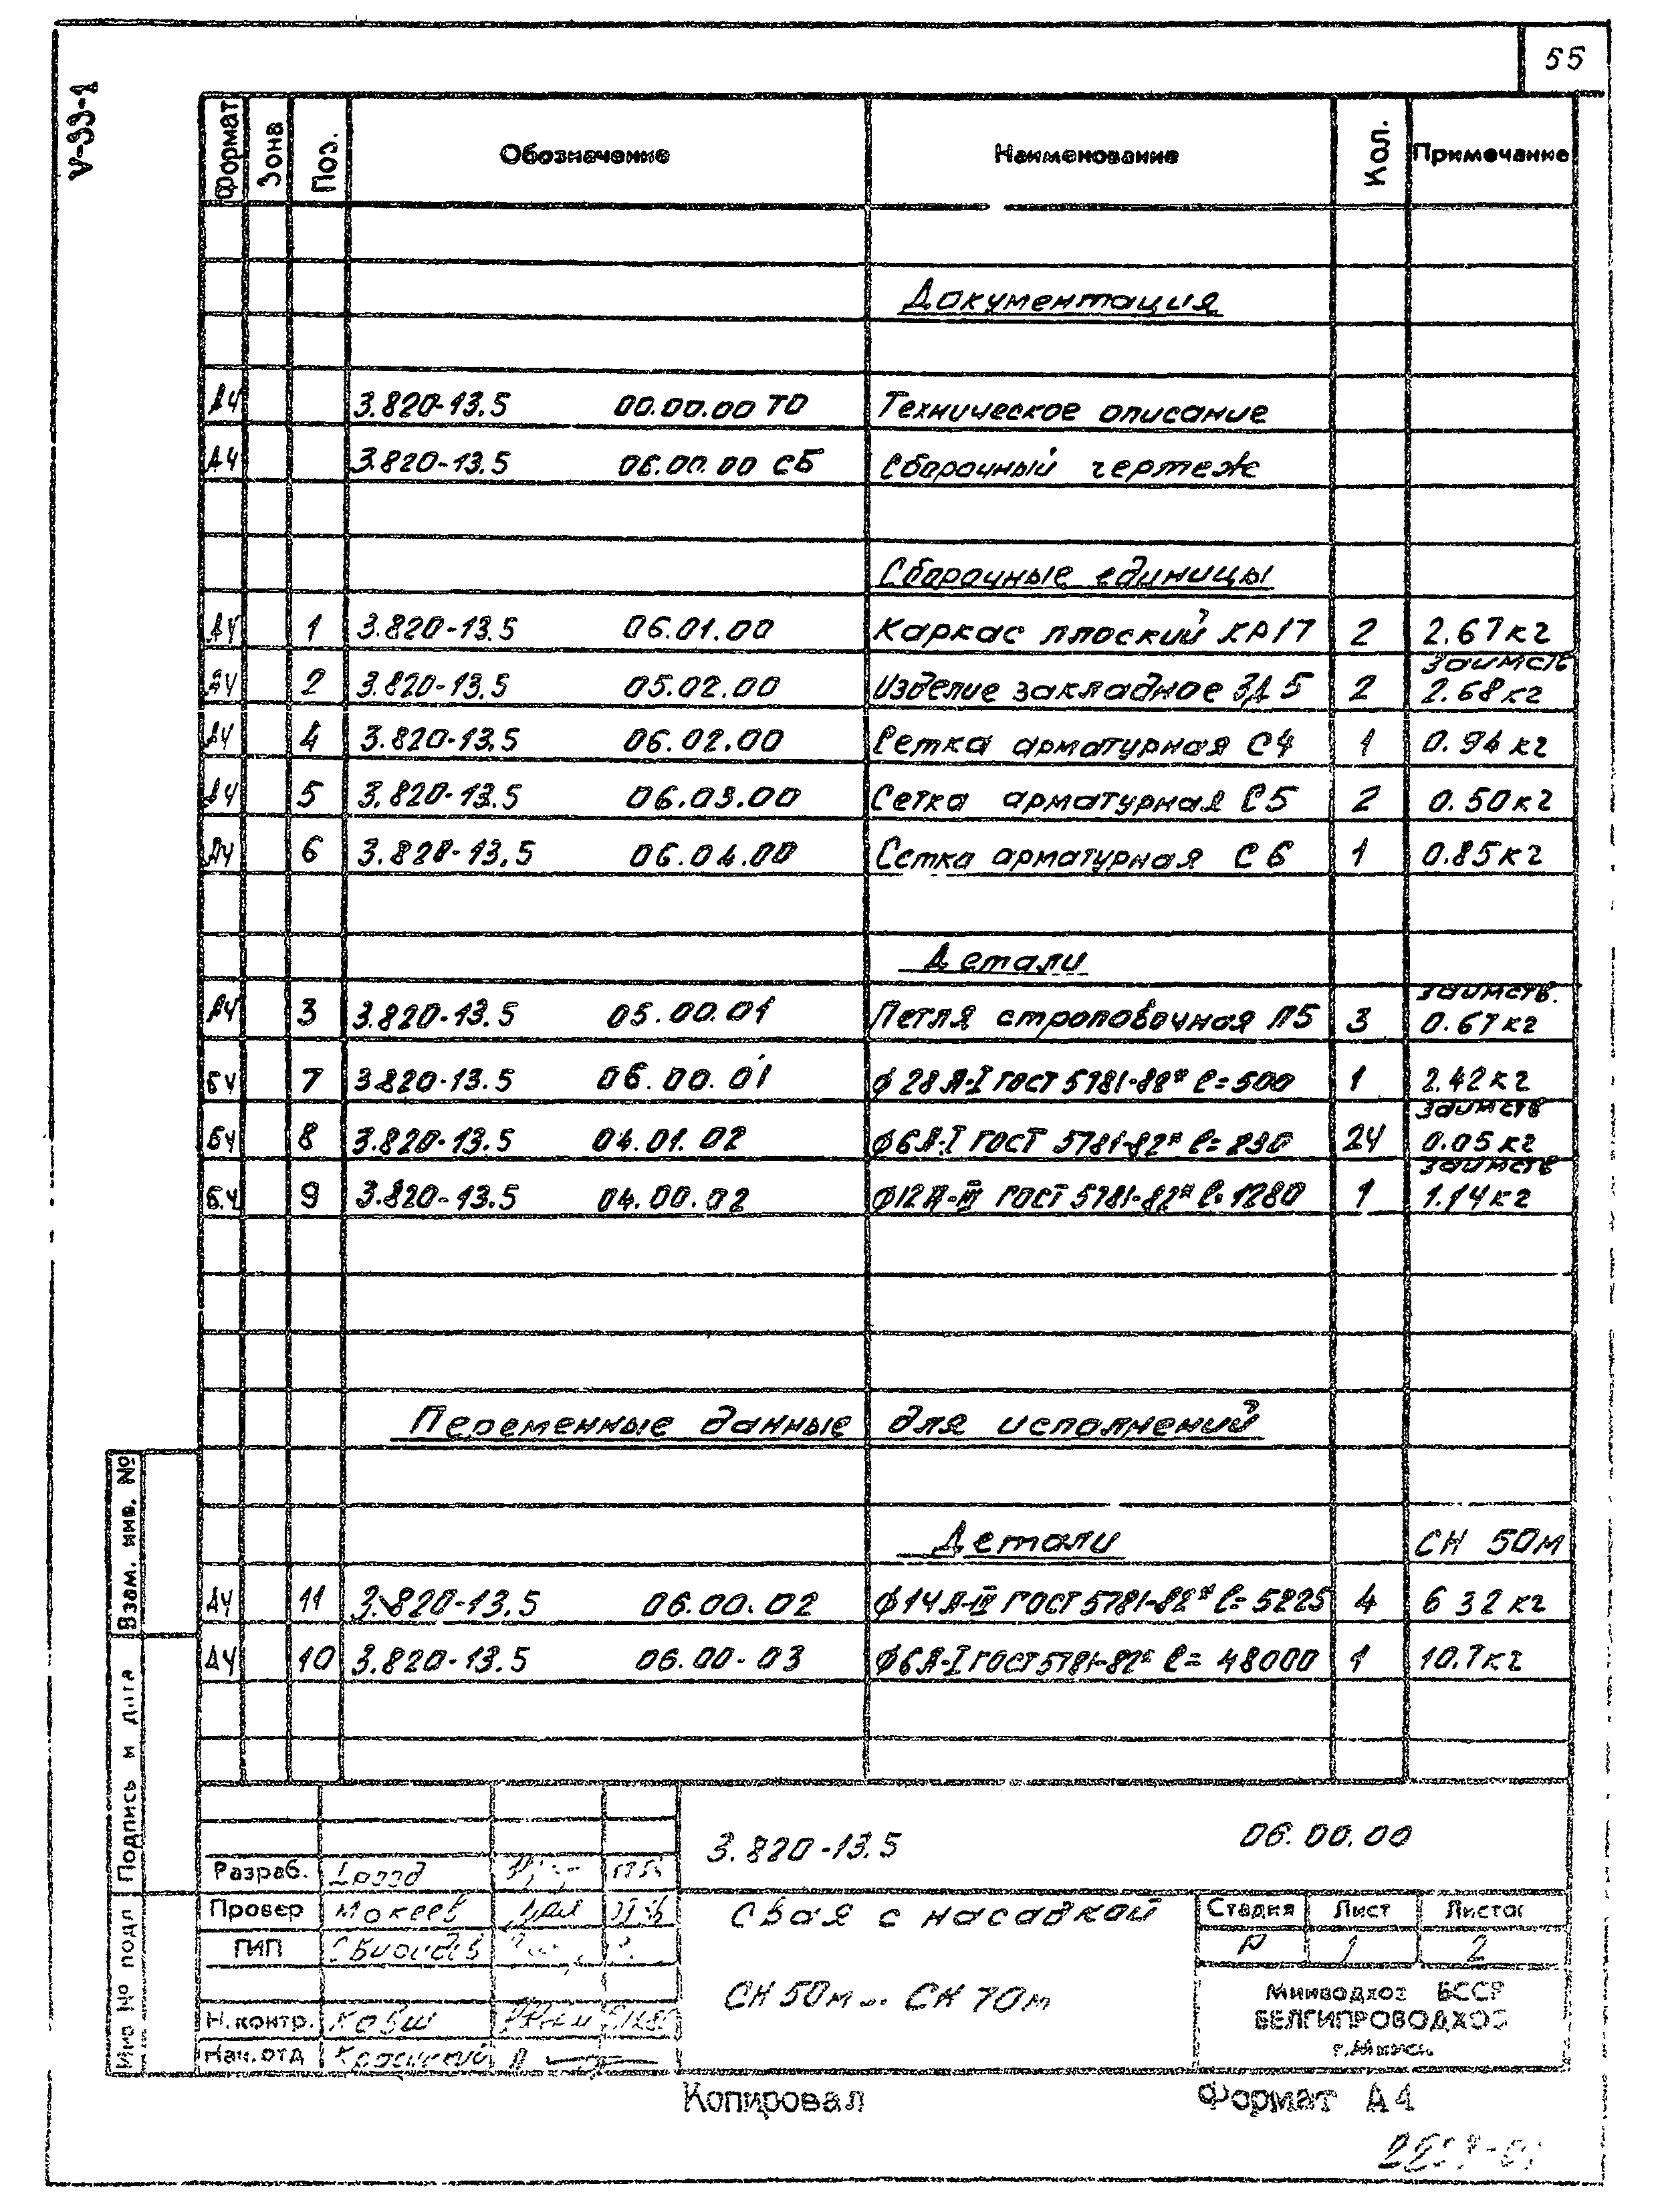 55
V-33-1
Формат Зона Поз. Обозначение Наименование Кол. Примечание
Документация
А4 3.820-13.5 00.00.00 ТО Техническое описание
А4 3.820-13.5 06.00.00 СБ Сборочный чертеж
Сборочные единицы
А4 1 3.820-13.5 06.01.00 Каркас плоский КР17 2 2.67кг
А4 2 3.820-13.5 05.02.00 Изделие закладное ЗД5 2 заимств 2.68кг
А4 4 3.820-13.5 06.02.00 Сетка арматурная С4 1 0.94кг
А4 5 3.820-13.5 06.03.00 Сетка арматурная С5 2 0.50кг
А4 6 3.820-13.5 06.04.00 Сетка арматурная С6 1 0.85кг
Детали
А4 3 3.820-13.5 05.00.01 Петля строповочная П5 3 заимств. 0.67кг
БЧ 7 3.820-13.5 06.00.01 ф28А-I ГОСТ 5781-82* l=500 1 2.42кг
БЧ 8 3.820-13.5 04.01.02 ф6А-I ГОСТ 5781-82* l=230 24 заимств 0.05кг
Б.Ч 9 3.820-13.5 04.00.02 ф12А-III ГОСТ 5781-82* l=1280 1 заимств 1.14кг
Переменные данные для исполнений
Детали СН 50м
А4 11 3.820-13.5 06.00.02 ф14А-III ГОСТ 5781-82* l=5225 4 6 32кг
А4 10 3.820-13.5 06.00-03 ф6А-I ГОСТ 5781-82* l=48000 1 10.7кг
Взам. инв. №
Подпись и дата
Инв № подл
3.820-13.5 06.00.00
Разраб.
Провер Мокеев
ГИП
Н.контр. Ковш
Нач.отд
Свая с насадкой
СН 50м... СН 70м
Стадия Лист Листов
Р 1 2
Минводхоз БССР
БЕЛГИПРОВОДХОЗ
г.Минск
Копировал Формат А4